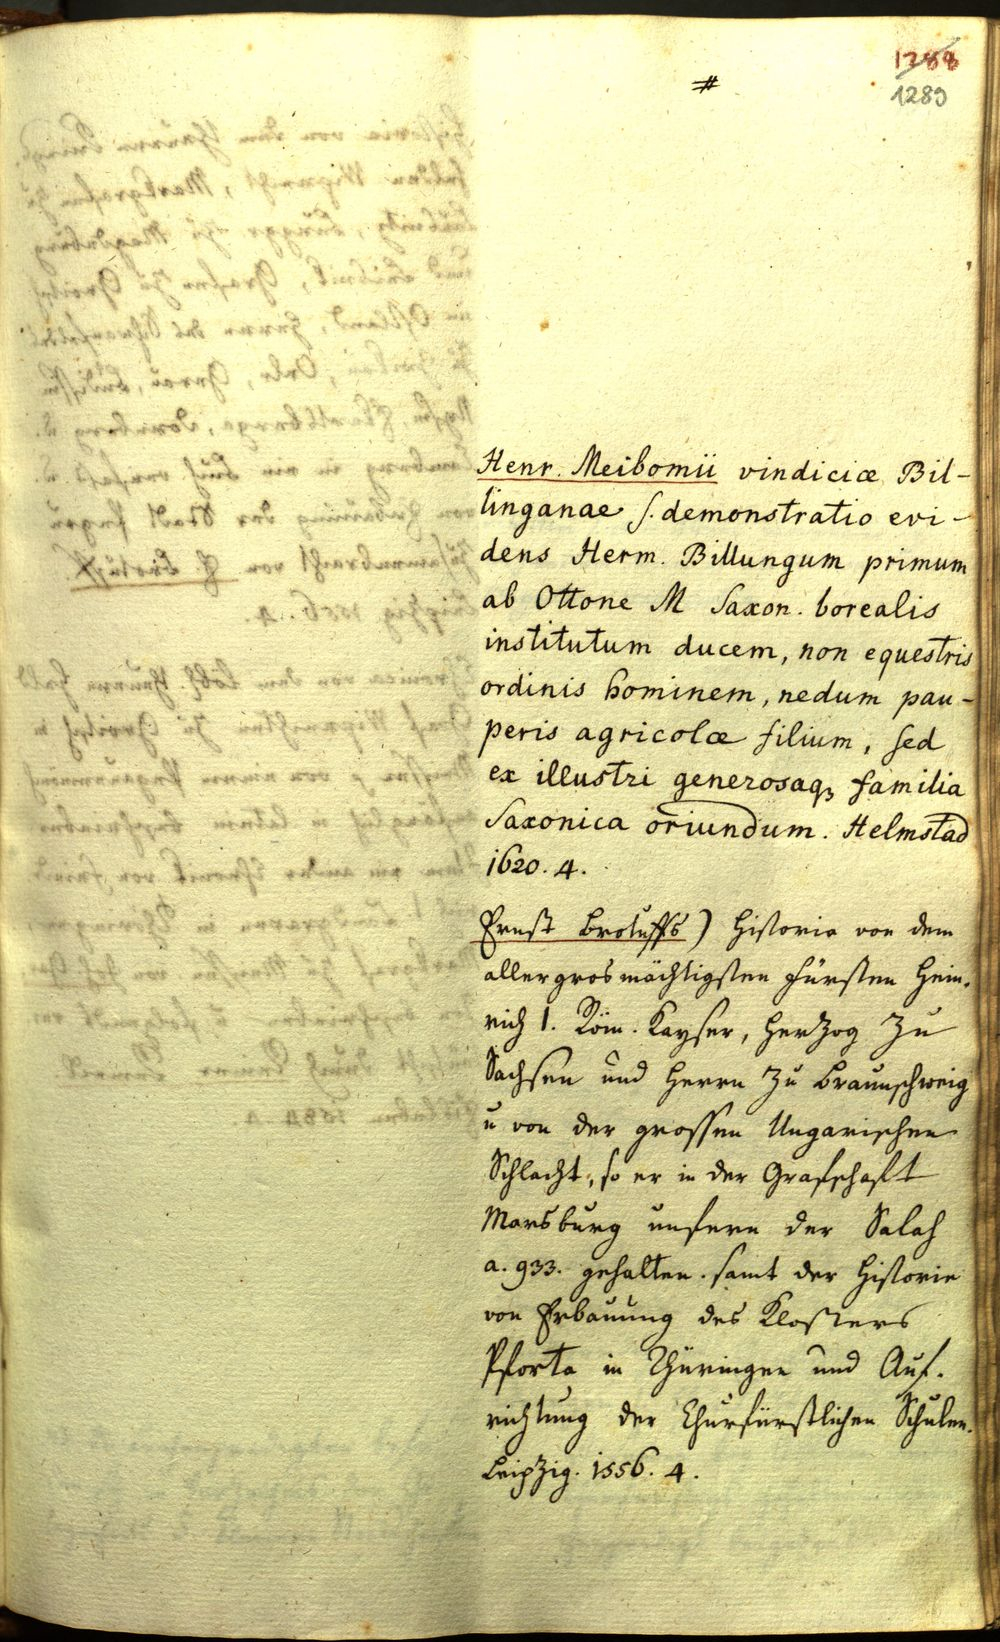 #
1288
1289
Henr. Meibomii vindiciæ Bil-
linganae s. demonstratio evi-
dens Herm. Billungum primum
ab Ottone M Saxon. borealis
institutum ducem, non equestris
ordinis hominem, nedum pau-
peris agricolæ filium, sed
ex illustri generosaq₃ familia
Saxonica oriundum. Helmstad
1620. 4.
Ernst Brotuffs) Historia von dem
allergrosmächtigsten Fürsten Hein-
rich 1. Röm. Kayser, Herzog zu
Sachsen und Herrn zu Braunschweig
u von der grossen Ungarischen
Schlacht, so er in der Grafschaft
Marsburg unfern der Salah
a. 933. gehalten. samt der Historie
von Erbauung des Klosters
Pforta in Thüringen und Auf-
richtung der Churfürstlichen Schulen.
Leipzig. 1556. 4.